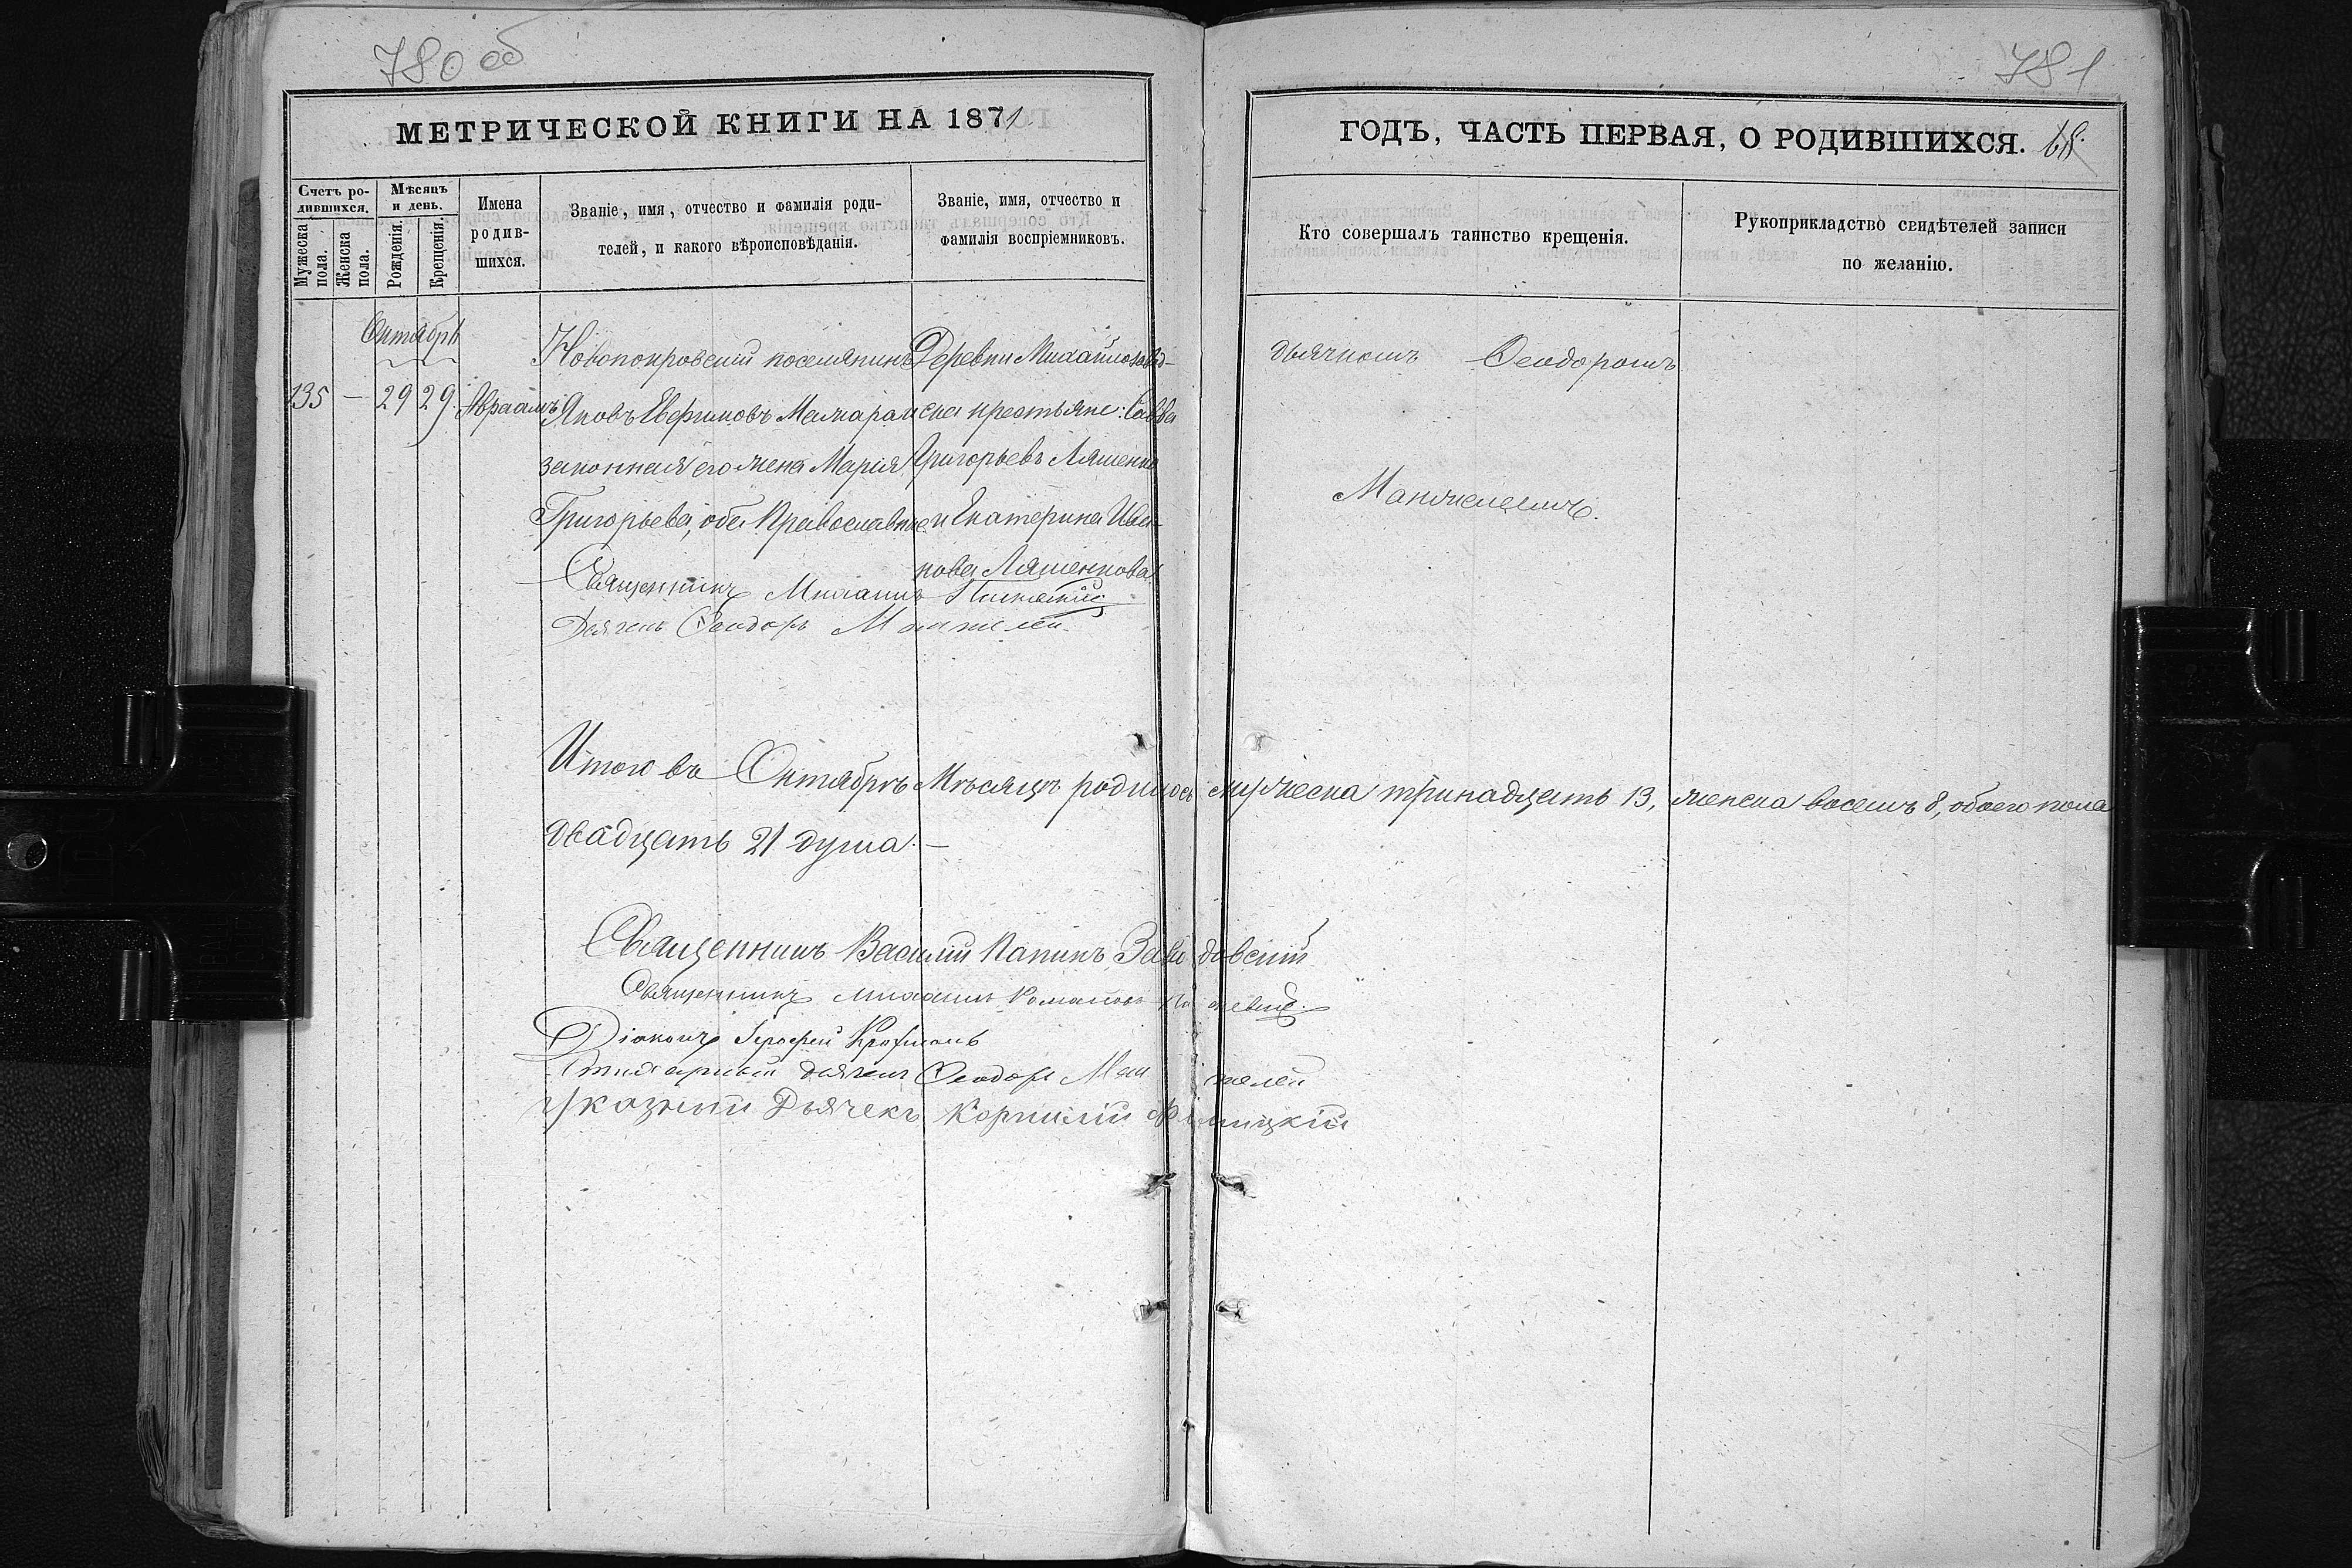 780 об
МЕТРИЧЕСКОЙ КНИГИ НА 1871
Счетъ ро-
дившихся.
Мужеска
пола.
Женска
пола.
Мѣсяцъ
и день.
Рожденія.
Крещенія.
Имена
родив-
шихся.
Званіе, имя, отчество и фамилія роди-
телей, и какого вѣроисповѣданія.
Званіе, имя, отчество и
фамилія воспріемниковъ.
Октябрь
135 — 29 29 Авраамъ
Новопокровскій поселянинъ
Яковъ Евфимовъ
законная его жена Марія
Григорьева, оба Православные
Деревни
крестьяне: Савва
Григорьевъ Ляшенко
и Екатерина Ива-
нова Ляшенкова.
Священникъ Михаилъ
Дьячекъ Ѳеодоръ Манжелей
Итого въ Октябрѣ Мѣсяцѣ родилось мужеска тринадцать 13, женска восемь 8, обоего пола
двадцать 21 душа.—
Священникъ Василій Завадовскій
Священникъ Михаилъ
Діаконъ Іерофей
дьячекъ Ѳеодоръ Манжелей
Указный Дьячекъ Корнилій
781
ГОДЪ, ЧАСТЬ ПЕРВАЯ, О РОДИВШИХСЯ. 68.
Кто совершалъ таинство крещенія.
Рукоприкладство свидѣтелей записи
по желанію.
дьячкомъ Ѳеодоромъ
Манжелеемъ.